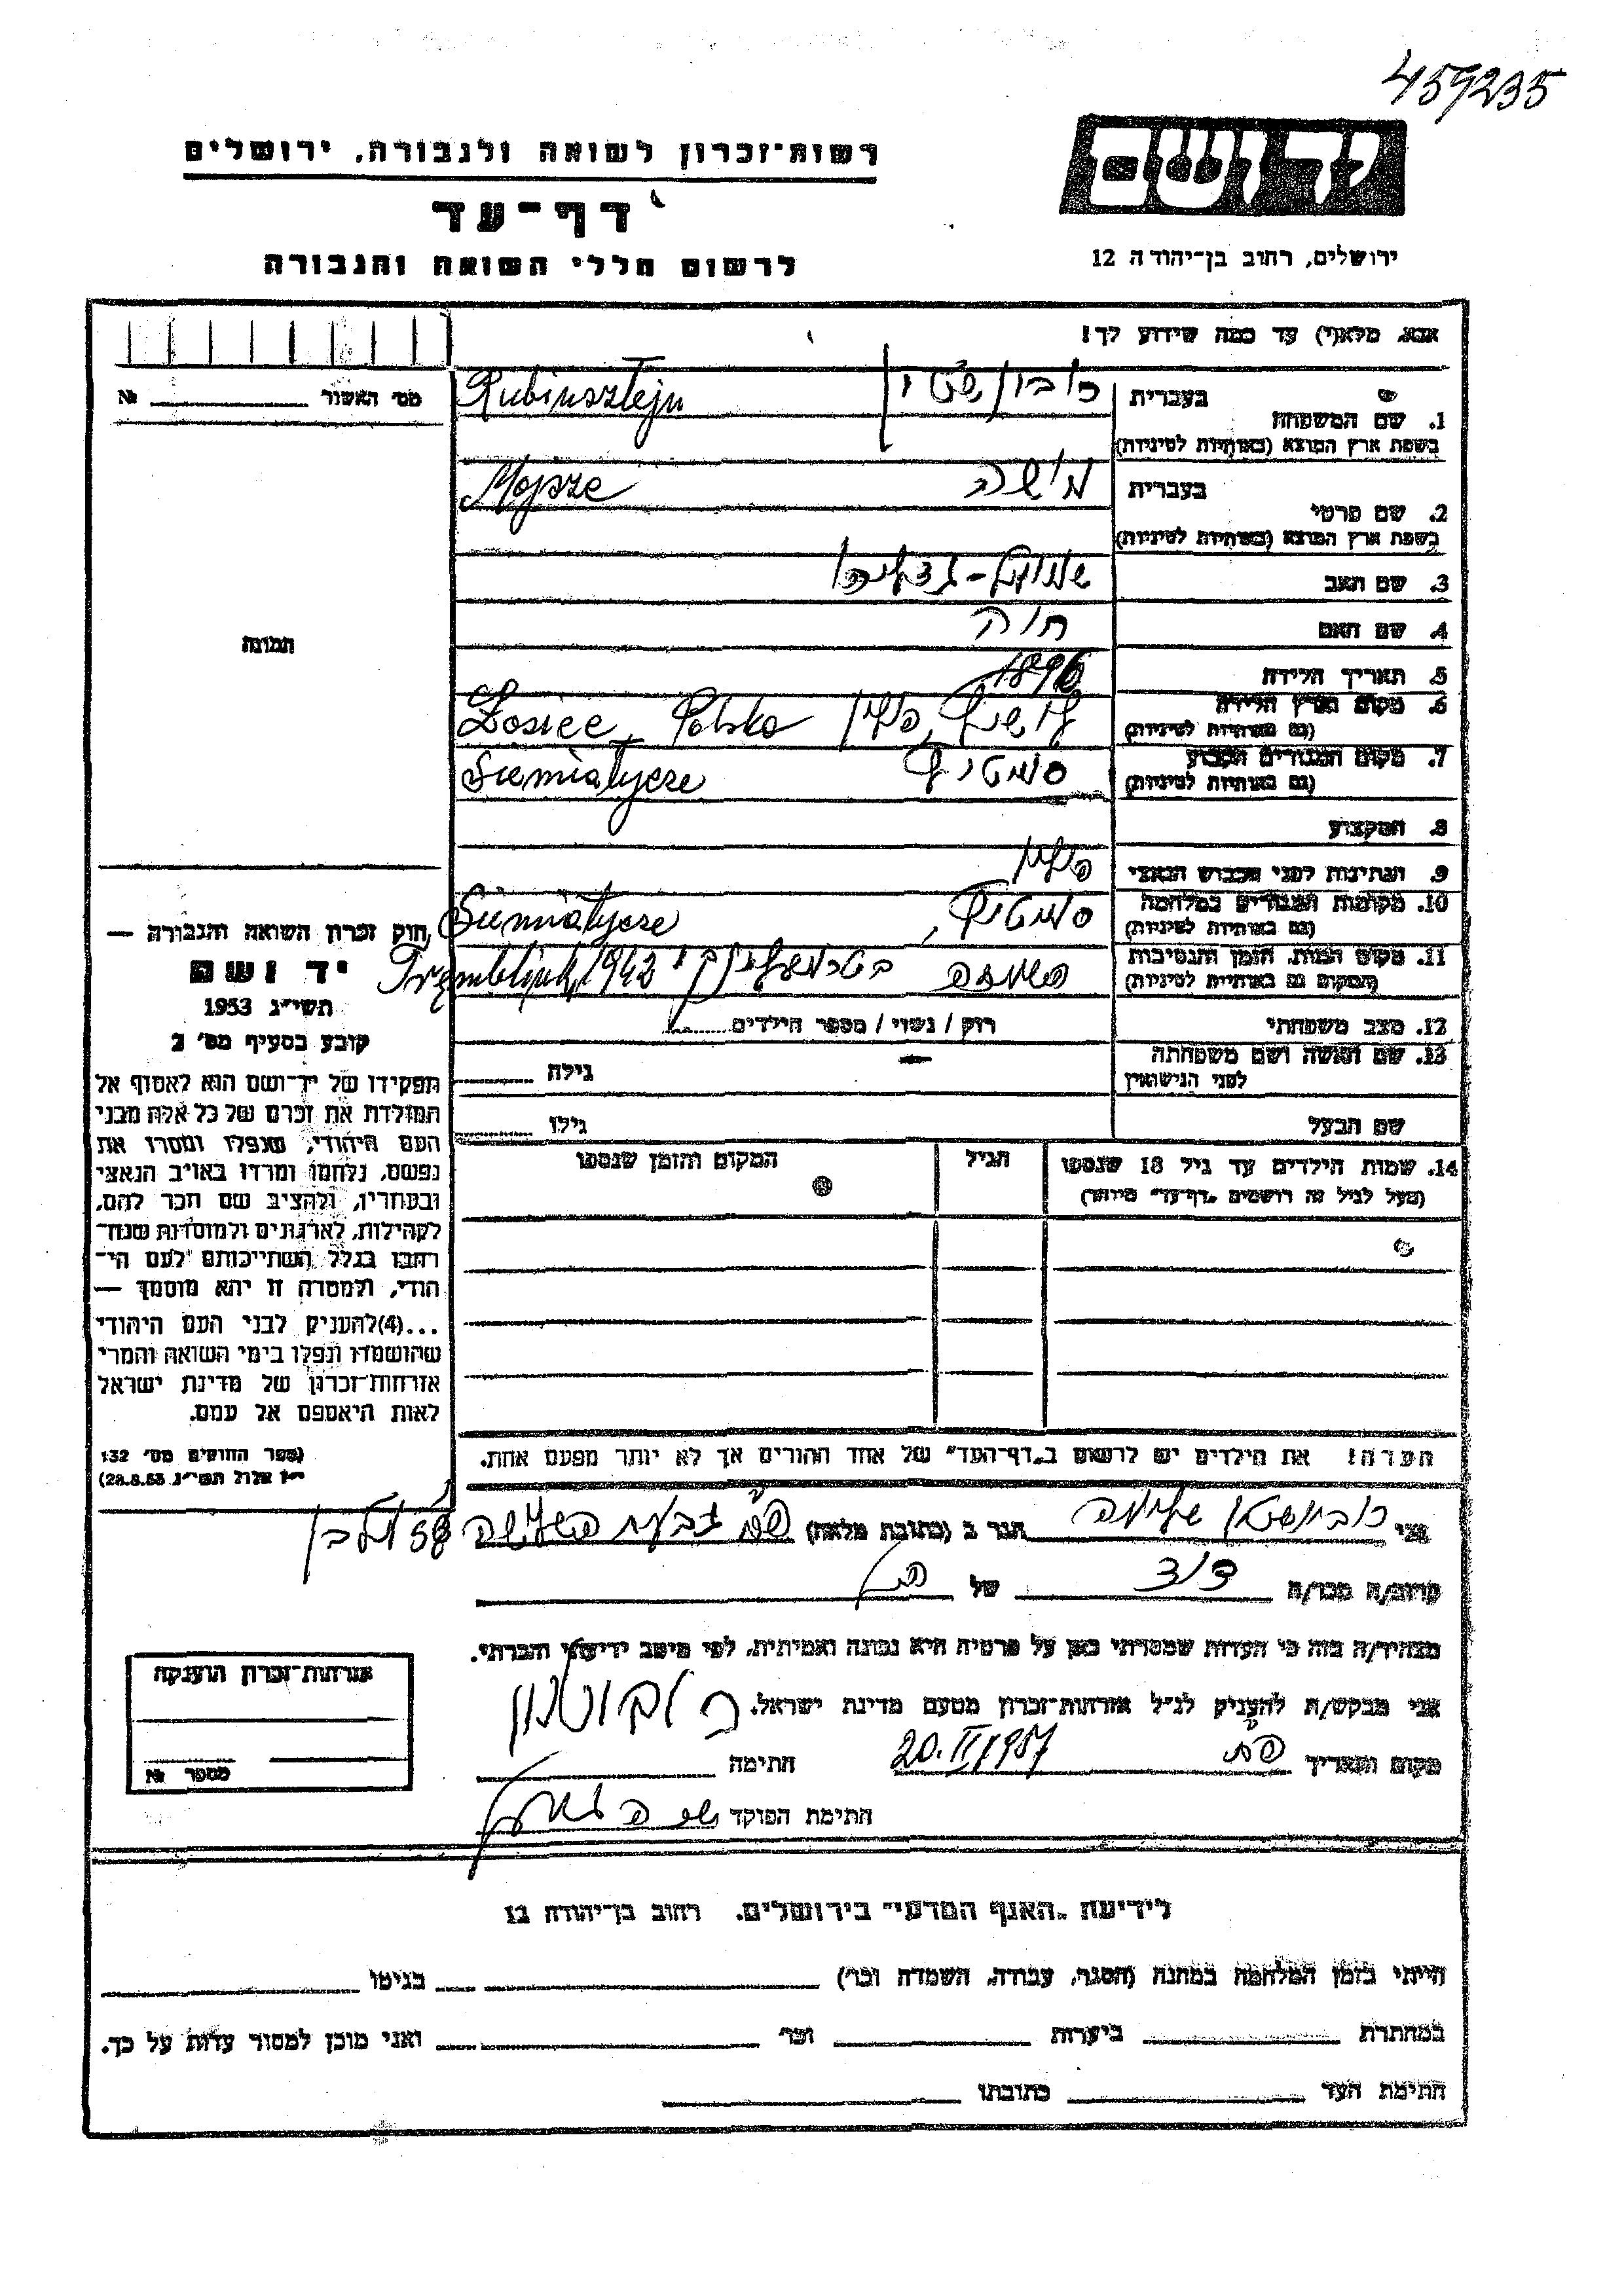 459235
יד ושם
רשות־זכרון לשואה ולגבורה, ירושלים
דף־עד
לרשום חללי השואה והגבורה
ירושלים, רחוב בן־יהודה 12
אנא, מלא(י) עד כמה שידוע לך!
מס׳ האשור № 
1. שם המשפחה בעברית רובינשטיין Rubinsztejn
בשפת ארץ המוצא (באותיות לטיניות)
2. שם פרטי בעברית משה Mojsze
בשפת ארץ המוצא (באותיות לטיניות)
3. שם האב שמואל-גדליהו
4. שם האם חוה
5. תאריך הלידה 1896
6. מקום וארץ הלידה לושיץ, פולין Łosice, Polska
(גם באותיות לטיניות)
7. מקום המגורים הקבוע סמטיץ Siemiatycze
(גם באותיות לטיניות)
8. המקצוע
9. הנתינות לפני הכבוש הנאצי פולין
10. מקומות המגורים במלחמה סמטיץ, Siemiatycze
(גם באותיות לטיניות)
11. מקום המות, הזמן והנסיבות הושמד בטרמבלינקי 1942 Tremblinki
(המקום גם באותיות לטיניות)
12. מצב משפחתי רווק / נשוי / מספר הילדים
13. שם האשה ושם משפחתה גילה
לפני הנישואין
שם הבעל גילו
14. שמות הילדים עד גיל 18 שנספו הגיל המקום והזמן שנספו
(מעל לגיל זה רושמים „דף־עד" מיוחד)
הערה! את הילדים יש לרשום ב„דף־העד" של אחד ההורים אך לא יותר מפעם אחת.
תמונה
חוק זכרון השואה והגבורה —
יד ושם
תשי״ג 1953
קובע בסעיף מס׳ 2
תפקידו של יד־ושם הוא לאסוף אל
המולדת את זכרם של כל אלה מבני
העם היהודי, שנפלו ומסרו את
נפשם, נלחמו ומרדו באויב הנאצי
ובעוזריו, ולהציב שם וזכר להם,
לקהילות, לארגונים ולמוסדות שנח־
רבו בגלל השתייכותם לעם הי־
הודי, ולמטרה זו יהא מוסמך —
...(4)להעניק לבני העם היהודי
שהושמדו ונפלו בימי השואה והמרי
אזרחות־זכרון של מדינת ישראל
לאות היאספם אל עמם.
(ספר החוקים מס׳ 132
י״ז אלול תשי״ג 28.8.53)
אני רובינשטיין שלמה הגר ב (כתובת מלאה) פ״ת גבעת השלושה
קרוב/ה מכר/ה דוד של הנ״ל
מצהיר/ה בזה כי העדות שמסרתי כאן על פרטיה היא נכונה ואמיתית, לפי מיטב ידיעתי והכרתי.
אני מבקש/ת להעניק לנ״ל אזרחות־זכרון מטעם מדינת ישראל.
מקום ותאריך פ״ת 20.II 1957 חתימה
חתימת הפוקד
אזרחות־זכרון הוענקה
מספר №
לידיעת „האגף המדעי" בירושלים, רחוב בן־יהודה 12
הייתי בזמן המלחמה במחנה (הסגר, עבודה, השמדה וכר׳) בגיטו
במחתרת ביערות וכר׳ ואני מוכן למסור עדות על כך.
חתימת העד כתובתו